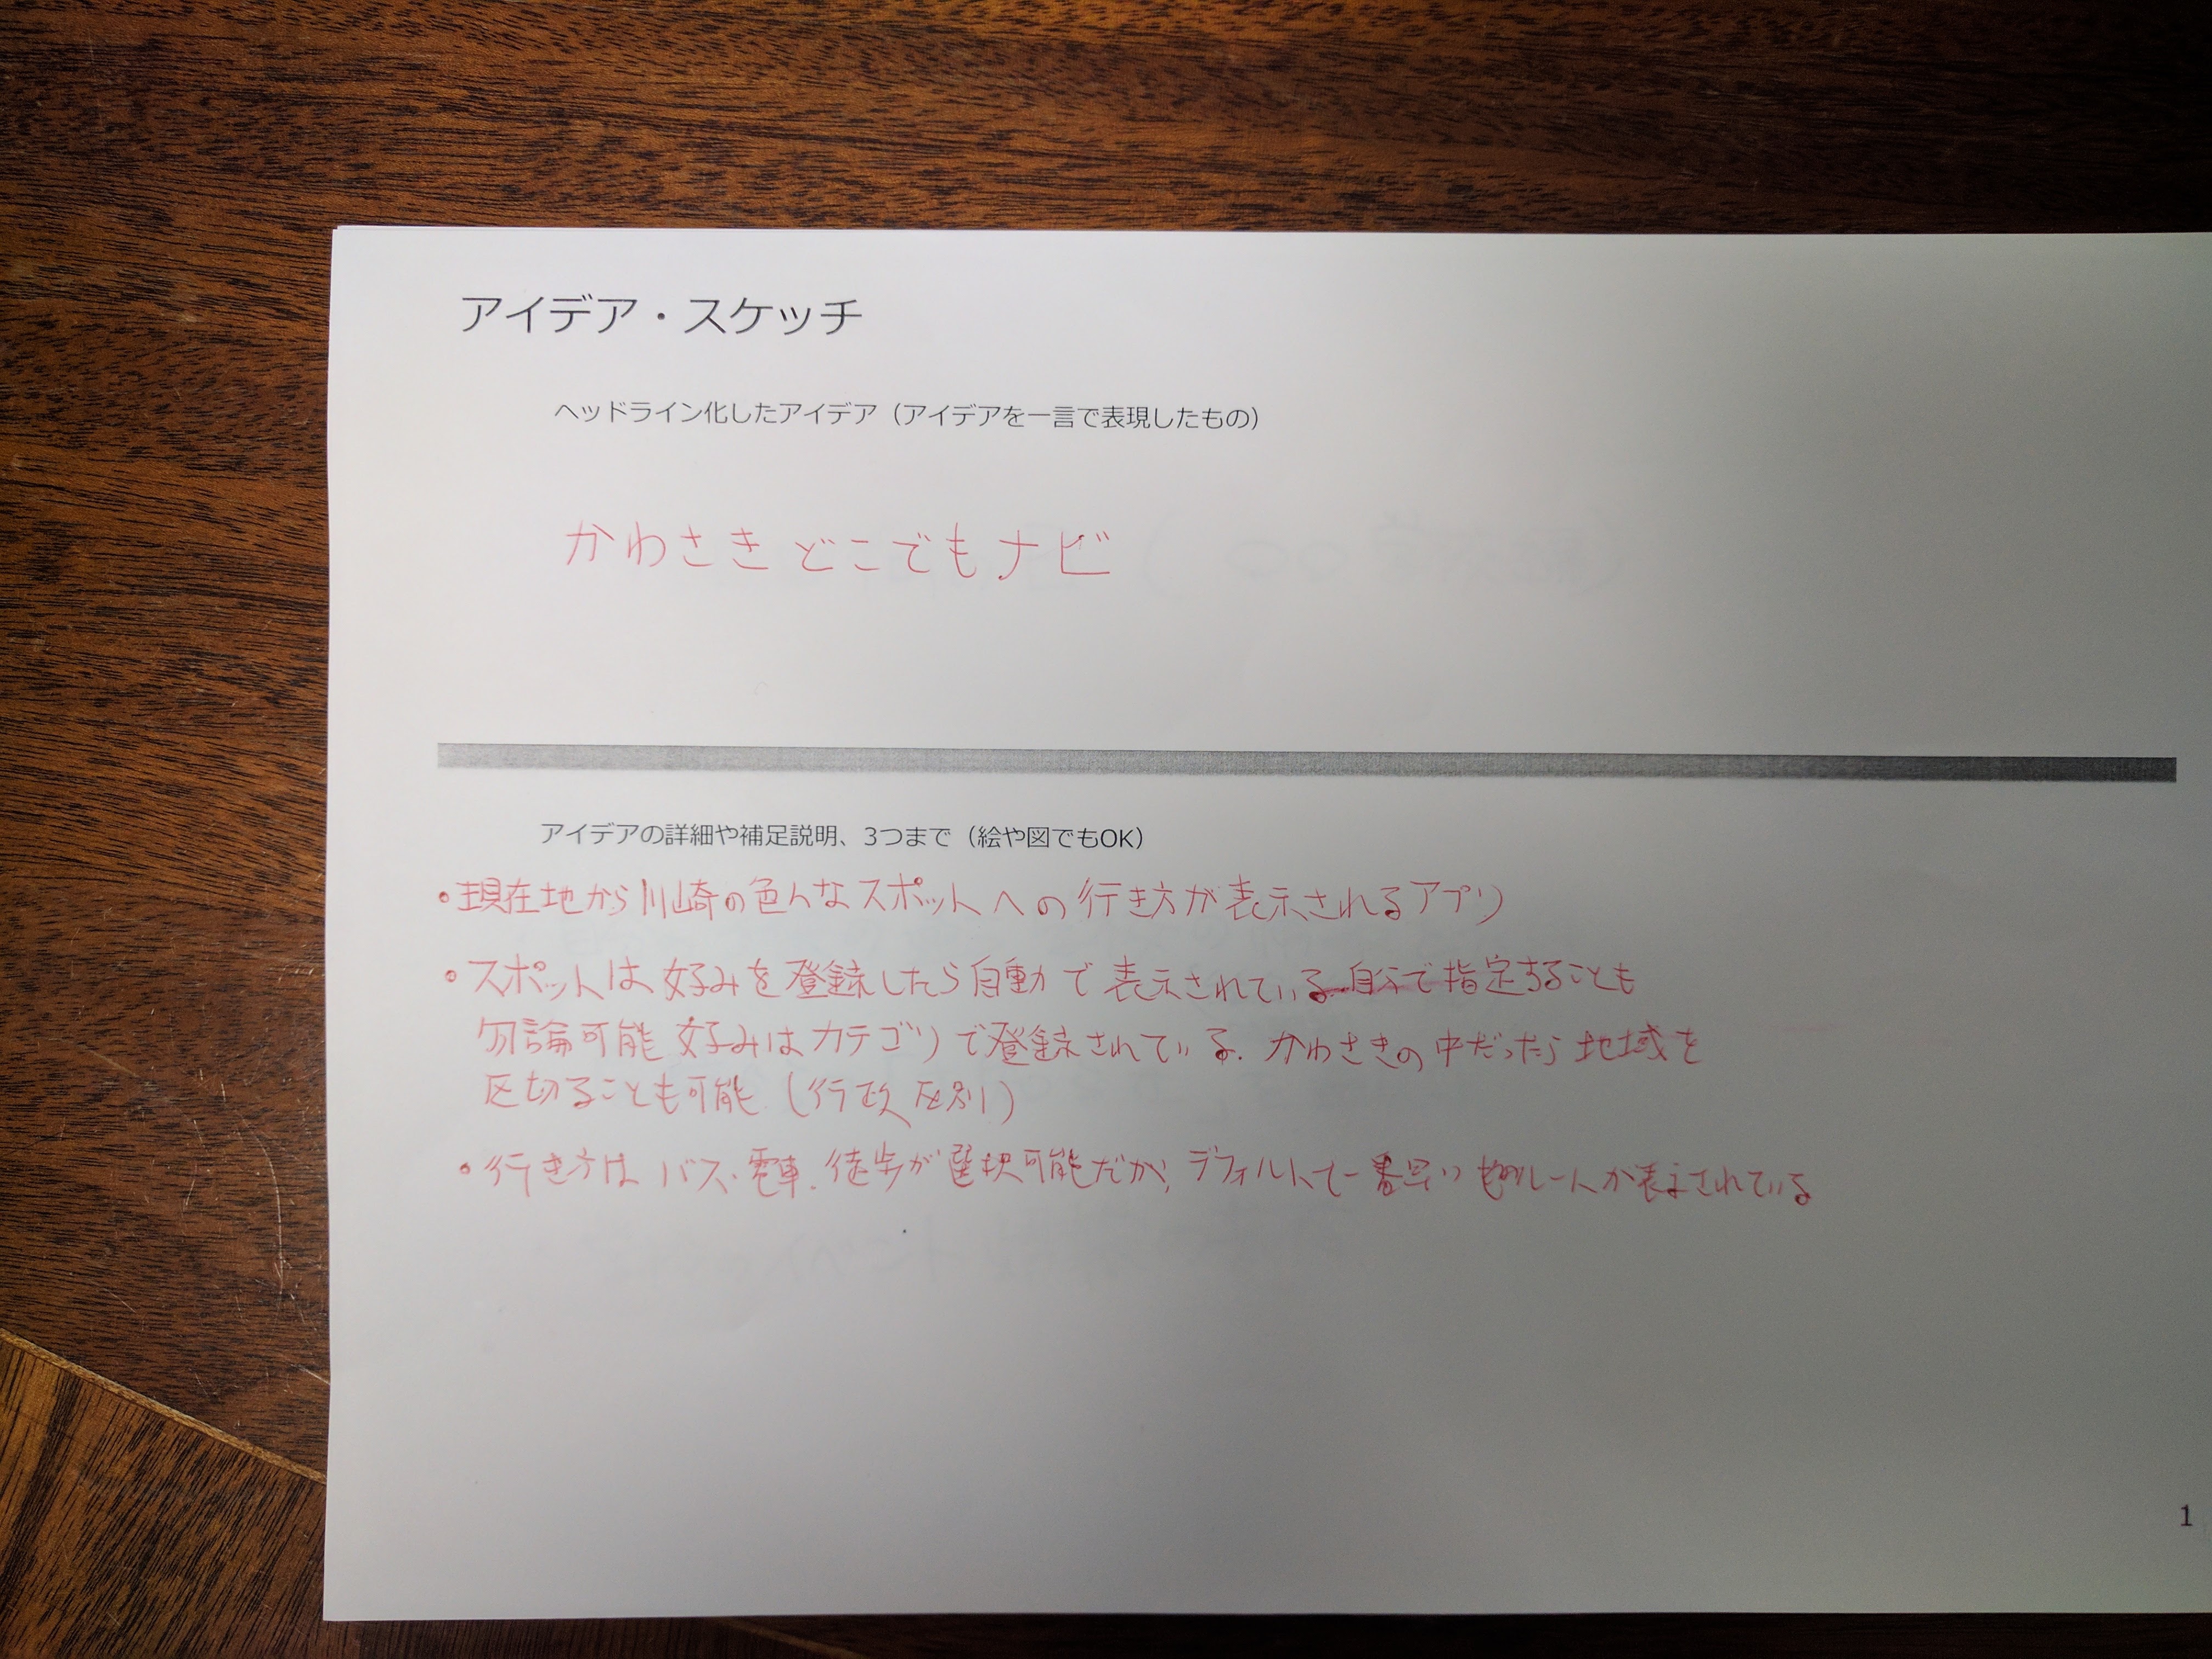 アイデア・スケッチ
ヘッドライン化したアイデア（アイデアを一言で表現したもの）
かわさきどこでもナビ
アイデアの詳細や補足説明、3つまで（絵や図でもOK）
・現在地から川崎の色んなスポットへの行き方が表示されるアプリ
・スポットは好みを登録したら自動で表示されている 自分で指定することも
勿論可能 好みはカテゴリで登録されている. かわさきの中だったら地域を
区切ることも可能 (行政区別)
・行き方は バス・電車.徒歩が選択可能だが, デフォルトで一番早いルートが表示されている
1